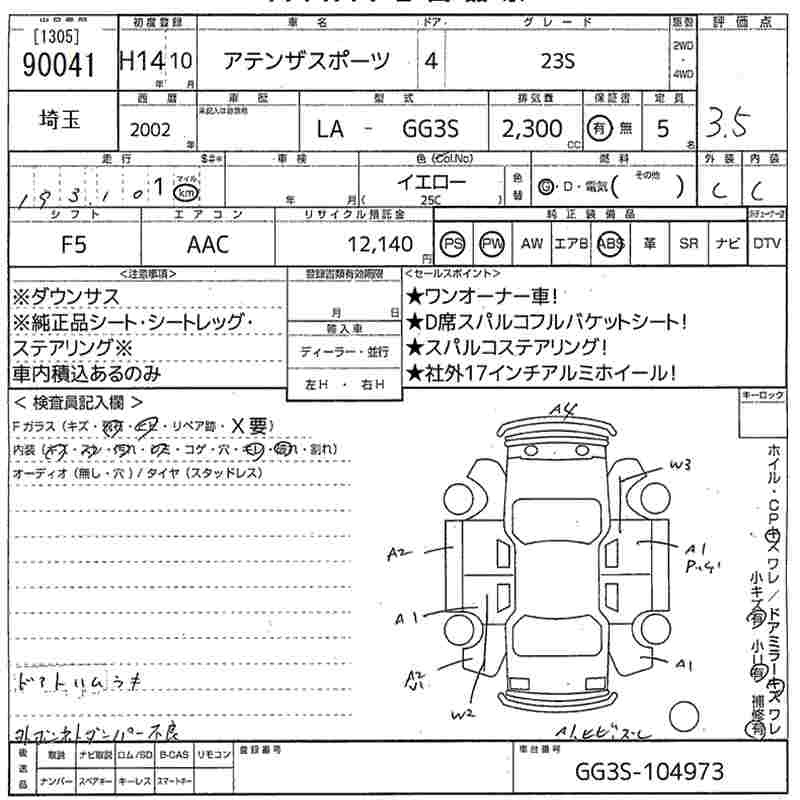 [1305]
90041
初度登録
H14 10
年 月
車名
アテンザスポーツ
ドア
4
グレード
23S
駆動
2WD
・
4WD
評価点
3.5
埼玉
西暦
2002
年
車歴
未記入は自家用
型式
LA - GG3S
排気量
2,300
CC
保証書
有 無
定員
5
名
走行
193,101
マイル
km
$#*
車検
年 月
色(Col.No)
イエロー
( 25C )
色替
燃料
G・D・電気( その他 )
外装
C
内装
C
シフト
F5
エアコン
AAC
リサイクル預託金
12,140
円
純正装備品
PS PW AW エアB ABS 革 SR ナビ DTV
<注意事項>
※ダウンサス
※純正品シート・シートレッグ・
ステアリング※
車内積込あるのみ
登録書類有効期限
月 日
輸入車
ディーラー・並行
左H ・ 右H
<セールスポイント>
★ワンオーナー車!
★D席スパルコフルバケットシート!
★スパルコステアリング!
★社外17インチアルミホイール!
< 検査員記入欄 >
Fガラス (キズ・・・リペア跡・X要)
内装 (キズ・スレ・汚れ・・コゲ・穴・キレ・・割れ)
オーディオ (無し・穴) / タイヤ (スタッドレス)
キーロック
A4
W3
A2
A1
A1
A2
A1
W2
A1
ホイル・CPキズワレ/ドアミラーキズワレ
小キズ有 小U有 補修有
ドアトリムうキ
後送品
取説 ナビ取説 ロム/SD B-CAS リモコン
ナンバー スペアキー キーレス スマートキー
登録番号
車台番号
GG3S-104973